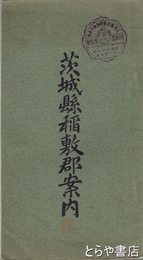 茨城縣稲敷郡案内
とらや書店